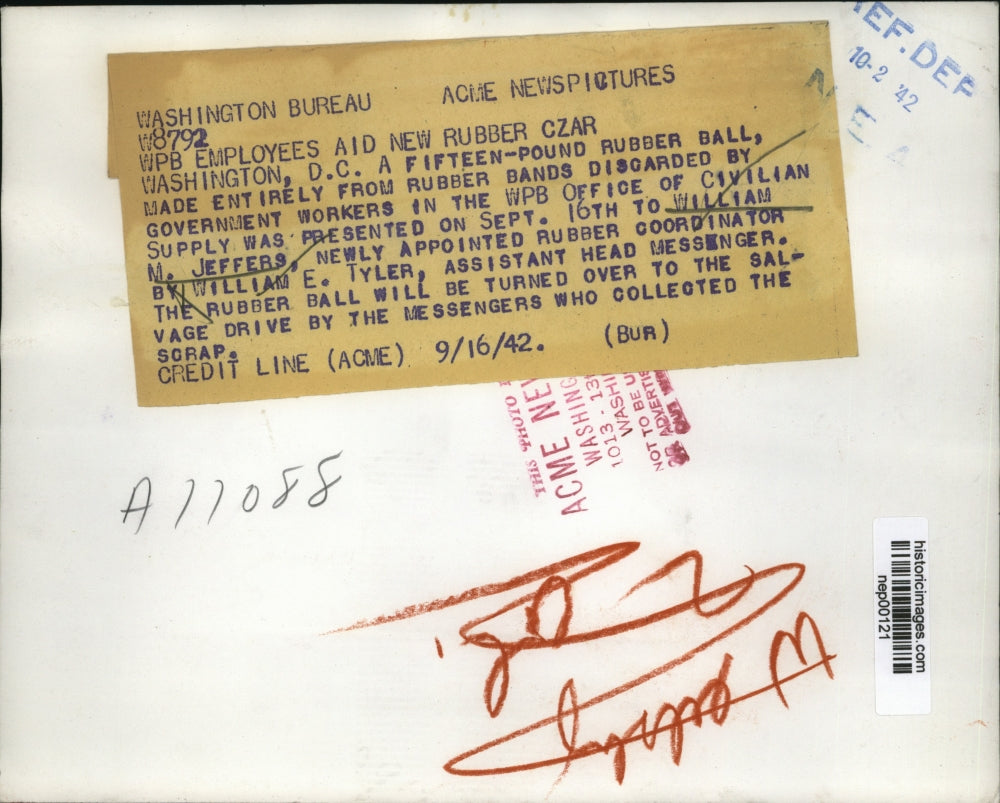 WASHINGTON BUREAU ACME NEWSPICTURES
W8792
WPB EMPLOYEES AID NEW RUBBER CZAR
WASHINGTON, D.C. A FIFTEEN-POUND RUBBER BALL,
MADE ENTIRELY FROM RUBBER BANDS DISCARDED BY
GOVERNMENT WORKERS IN THE WPB OFFICE OF CIVILIAN
SUPPLY WAS PRESENTED ON SEPT. 16TH TO WILLIAM
M. JEFFERS, NEWLY APPOINTED RUBBER COORDINATOR
BY WILLIAM E. TYLER, ASSISTANT HEAD MESSENGER.
THE RUBBER BALL WILL BE TURNED OVER TO THE SAL-
VAGE DRIVE BY THE MESSENGERS WHO COLLECTED THE
SCRAP.
CREDIT LINE (ACME) 9/16/42. (BUR)
REF. DEP
10-2 '42
THIS PHOTO
ACME NEW
WASHING
1013 - 13
WASHI
NOT TO BE U
ADVERTIS
A77088
historicimages.com
nep00121